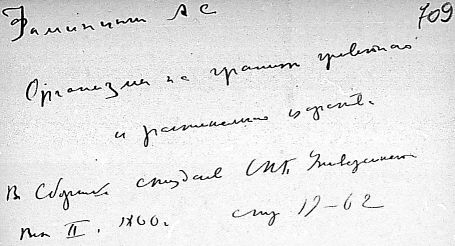 Фаминцин АС 709
Организмы на границе животного
и растительного царств.
В Сборник студент СПб. Университета
вып II. 1860. стр 19-62